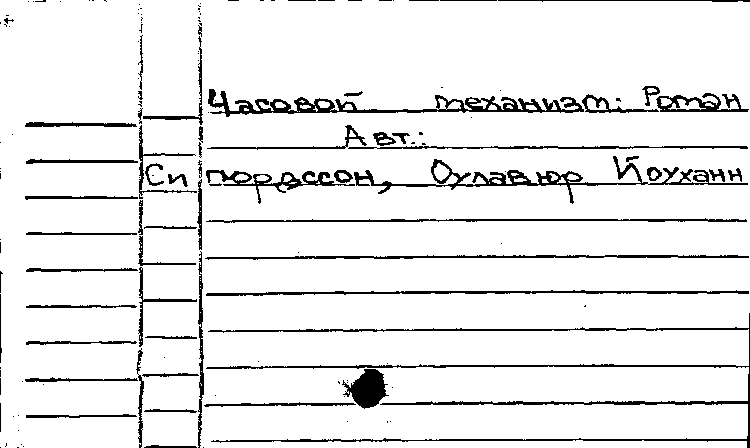 Часовой механизм: Роман
Авт.:
Сигюрдссон, Оулавюр Йоуханн